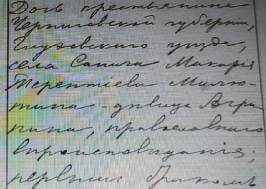 Дочь крестьянина
Черниговской губернии,
Глуховского уезда,
села Сопича Макария
Терентіева Милю-
тина - девица Агра-
пина, православнаго
вероисповеданія,
первымъ бракомъ